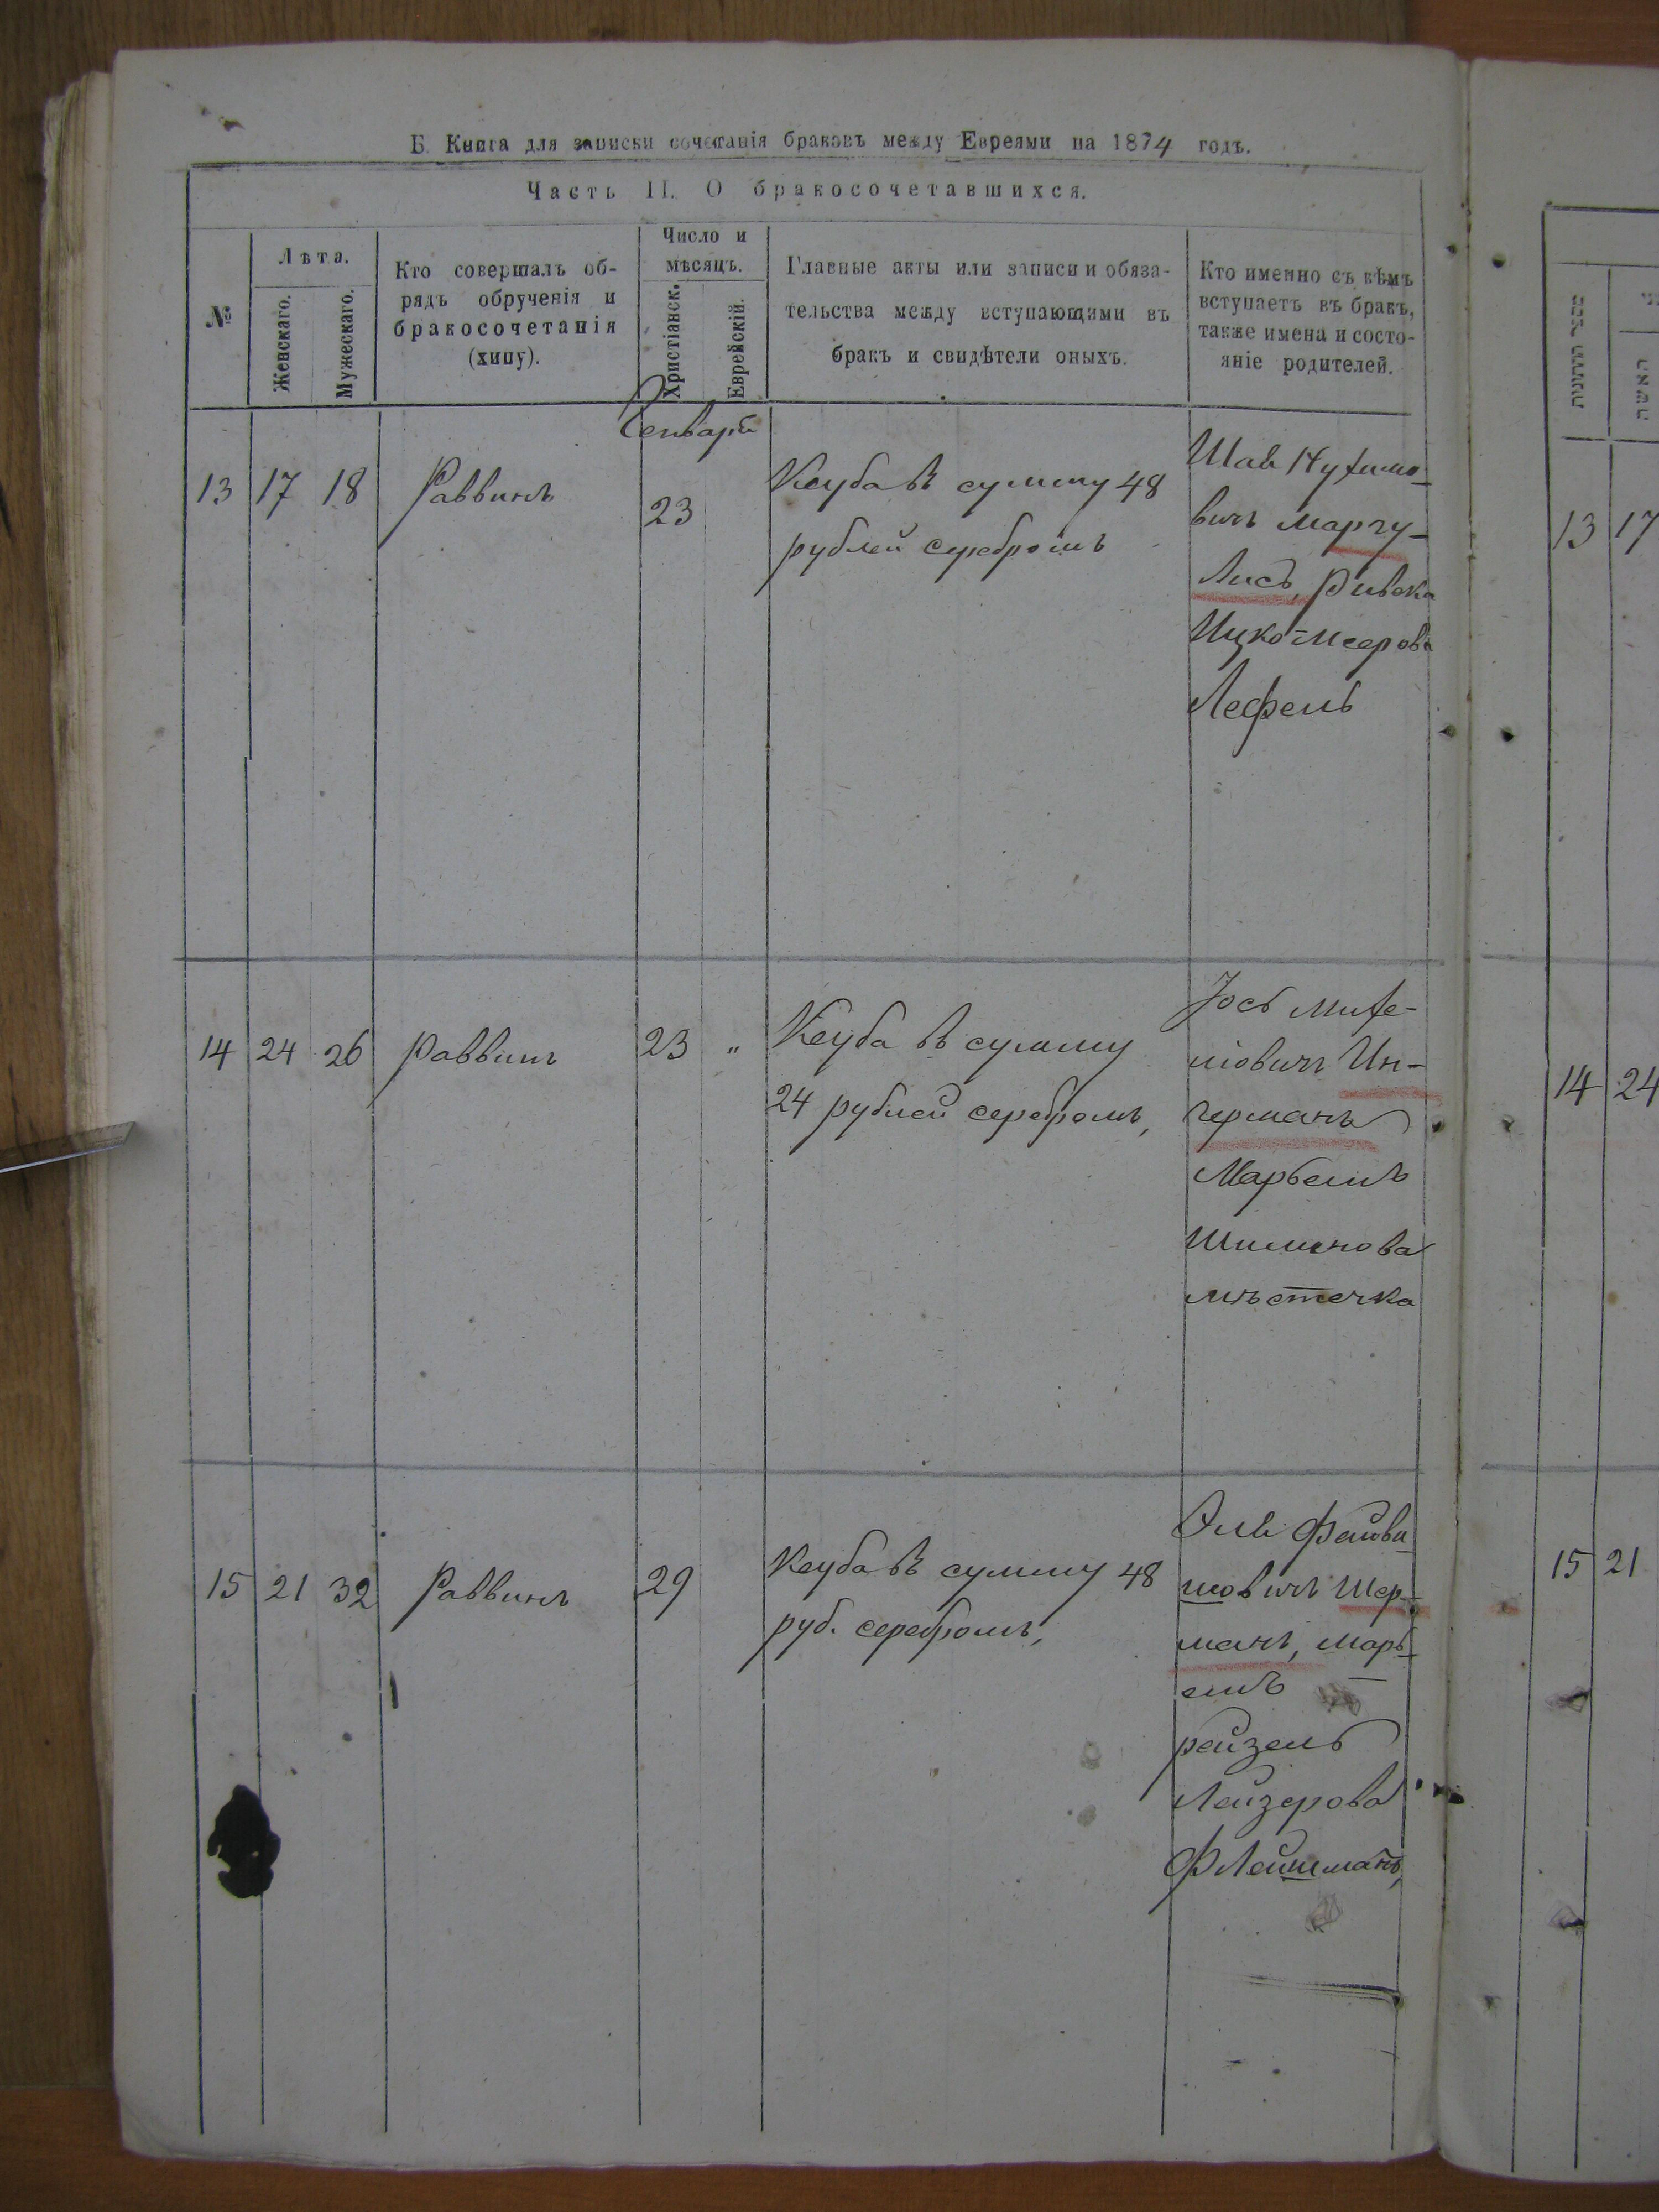 Б. Книга для записки сочетанія браковъ между Евреями на 1874 годъ.
Часть II. О бракосочетавшихся.
№
Лѣта.
Женскаго.
Мужескаго.
Кто совершалъ об-
рядъ обрученія и
бракосочетанія
(хипу).
Число и
мѣсяцъ.
Христіанск.
Еврейскій.
Главные акты или записи и обяза-
тельства между вступающими въ
бракъ и свидѣтели оныхъ.
Кто именно съ кѣмъ
вступаетъ въ бракъ,
также имена и состо-
яніе родителей.
Генваря
13 17 18 Раввинъ 23
Ксуба въ сумму 48
рублей серебромъ
Шая
вичъ Маргу-
лисъ, Ривека
Ицко-Меерова
Лефель
14 24 26 Раввинъ 23 "
Ксуба въ сумму
24 рублей серебромъ,
Іось Михе-
лiовичъ Ин-
германъ
Марбешъ
Шимонова
мѣстечка
15 21 32 Раввинъ 29
Ксуба въ сумму 48
руб. серебромъ,
Эли Файви
шовичъ Шер-
манъ,
рейзель
Лейзерова
Флейшманъ,
מספר החתונות
האשה
13 17
14 24
15 21